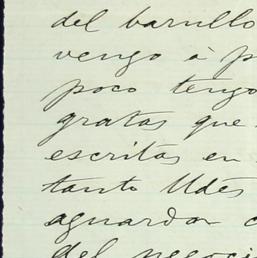 del barullo
vengo à p
poco tengo
gratas que
escritas en
tanto Udes
aguardan c
del negoci